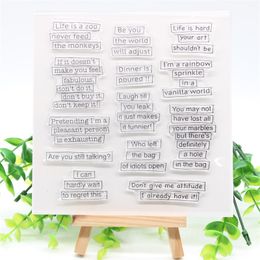 Life is a zoo
never feed
the monkeys
If it doesn't
make you feel
fabulous,
don't do it,
don't buy it,
don't keep it!
Pretending I'm a
pleasant person
is exhausting
Are you still talking?
I can
hardly wait
to regret this
Be you
the world
will adjust
Dinner is
poured !!
Laugh till
you leak
it just makes
it funnier!!
Who left
the bag
of idiots open
Life is hard,
your art
shouldn't be
I'm a rainbow
sprinkle
in a
vanilla world
You may not
have lost all
your marbles
but there's
definitely
a hole
in the bag
Don't give me attitude
I already have it!